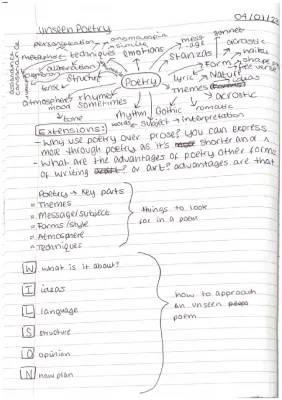 04/01/22
Unseen Poetry
personification
onomatopoeia
simile
metaphor
techniques
emotions
mess-age
sonnet
acrostic
alliteration
stanzas
Form
haiku
free verse
shape
assonance
consonance
structure
Poetry
lyric
Nature
ideas
Themes
acrostic
atmosphere
mood
rhyme
sometimes
tone
rhythm
Gothic
romantic
words
subject
interpretation
Extensions:
- Why use poetry over prose? you can express
more through poetry as it's shorter and
- What are the advantages of poetry other forms
of writing or art? advantages are that
Poetry → Key parts
= Themes
= Message/subject
= Forms/style
= Atmosphere
= Techniques
things to look
for in a poem
W what is it about?
I ideas
L language
S structure
O opinion
N now plan
how to approach
an unseen
poem